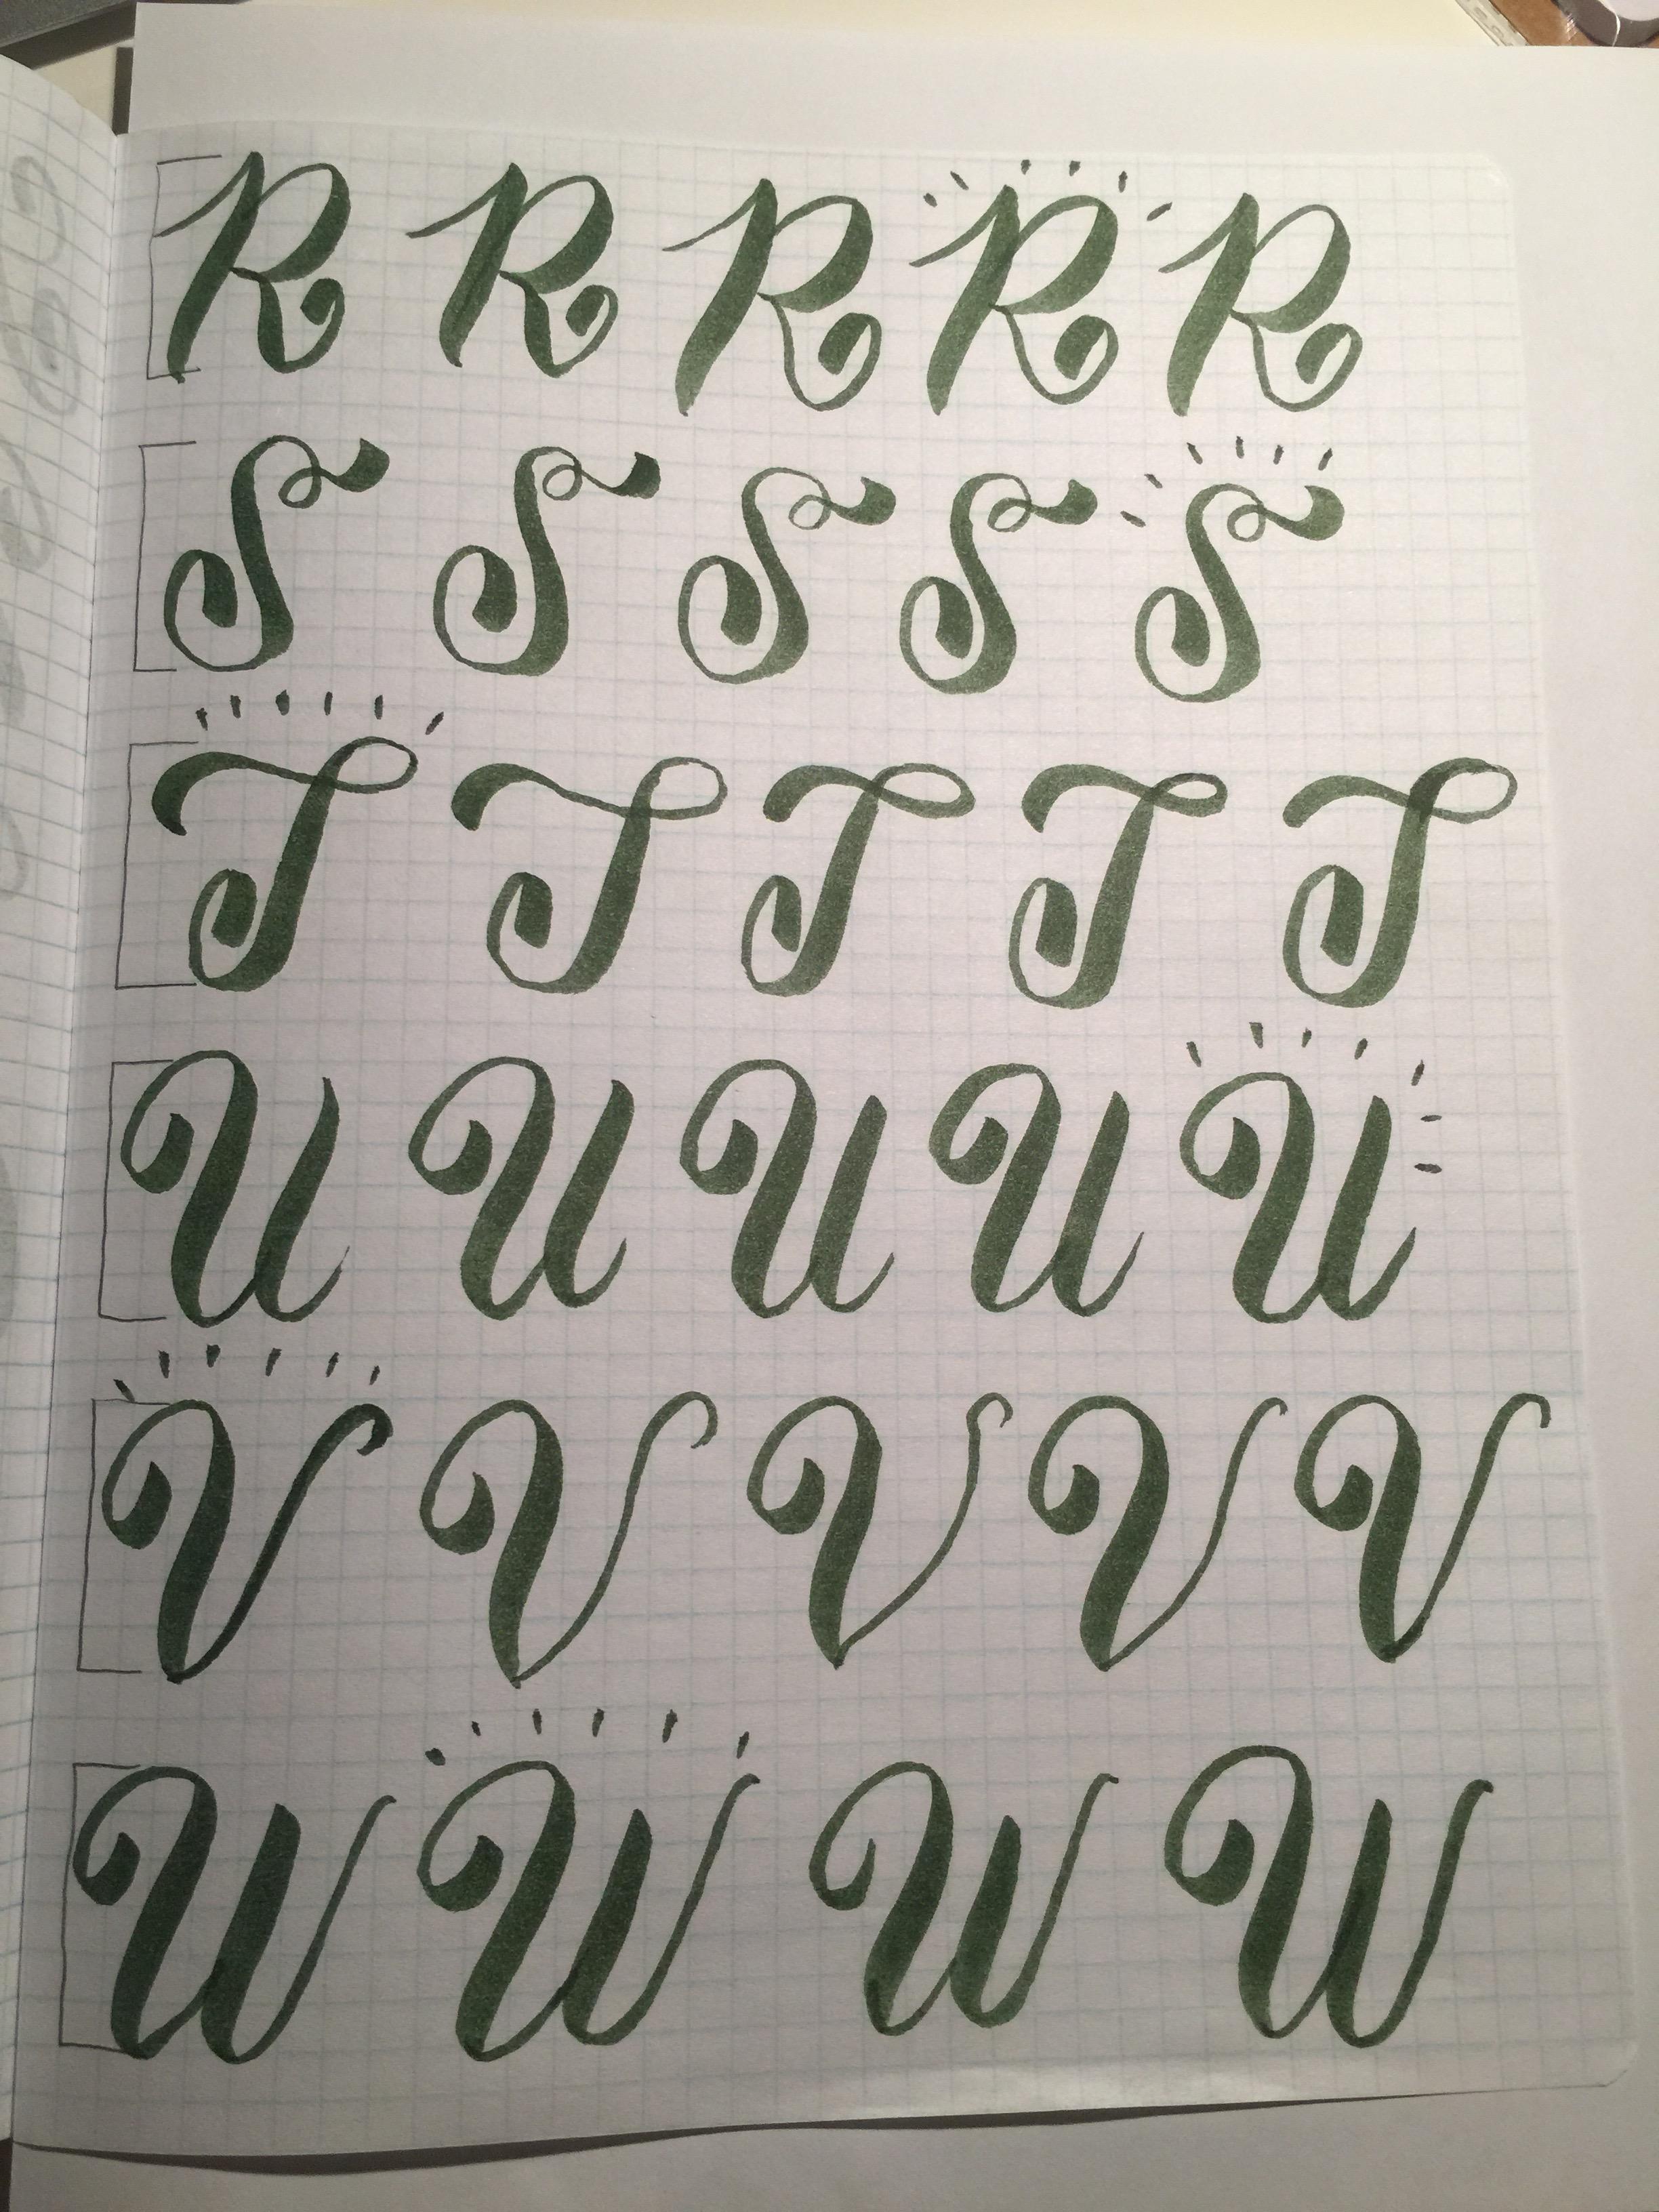 R R R R R
S S S S S
T T T T T
U U U U U
V V V V V
W W W W